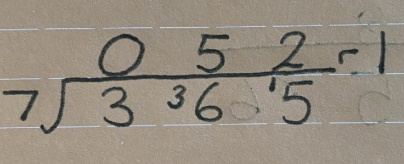 0 5 2 r 1
7 3 ³6 ¹5